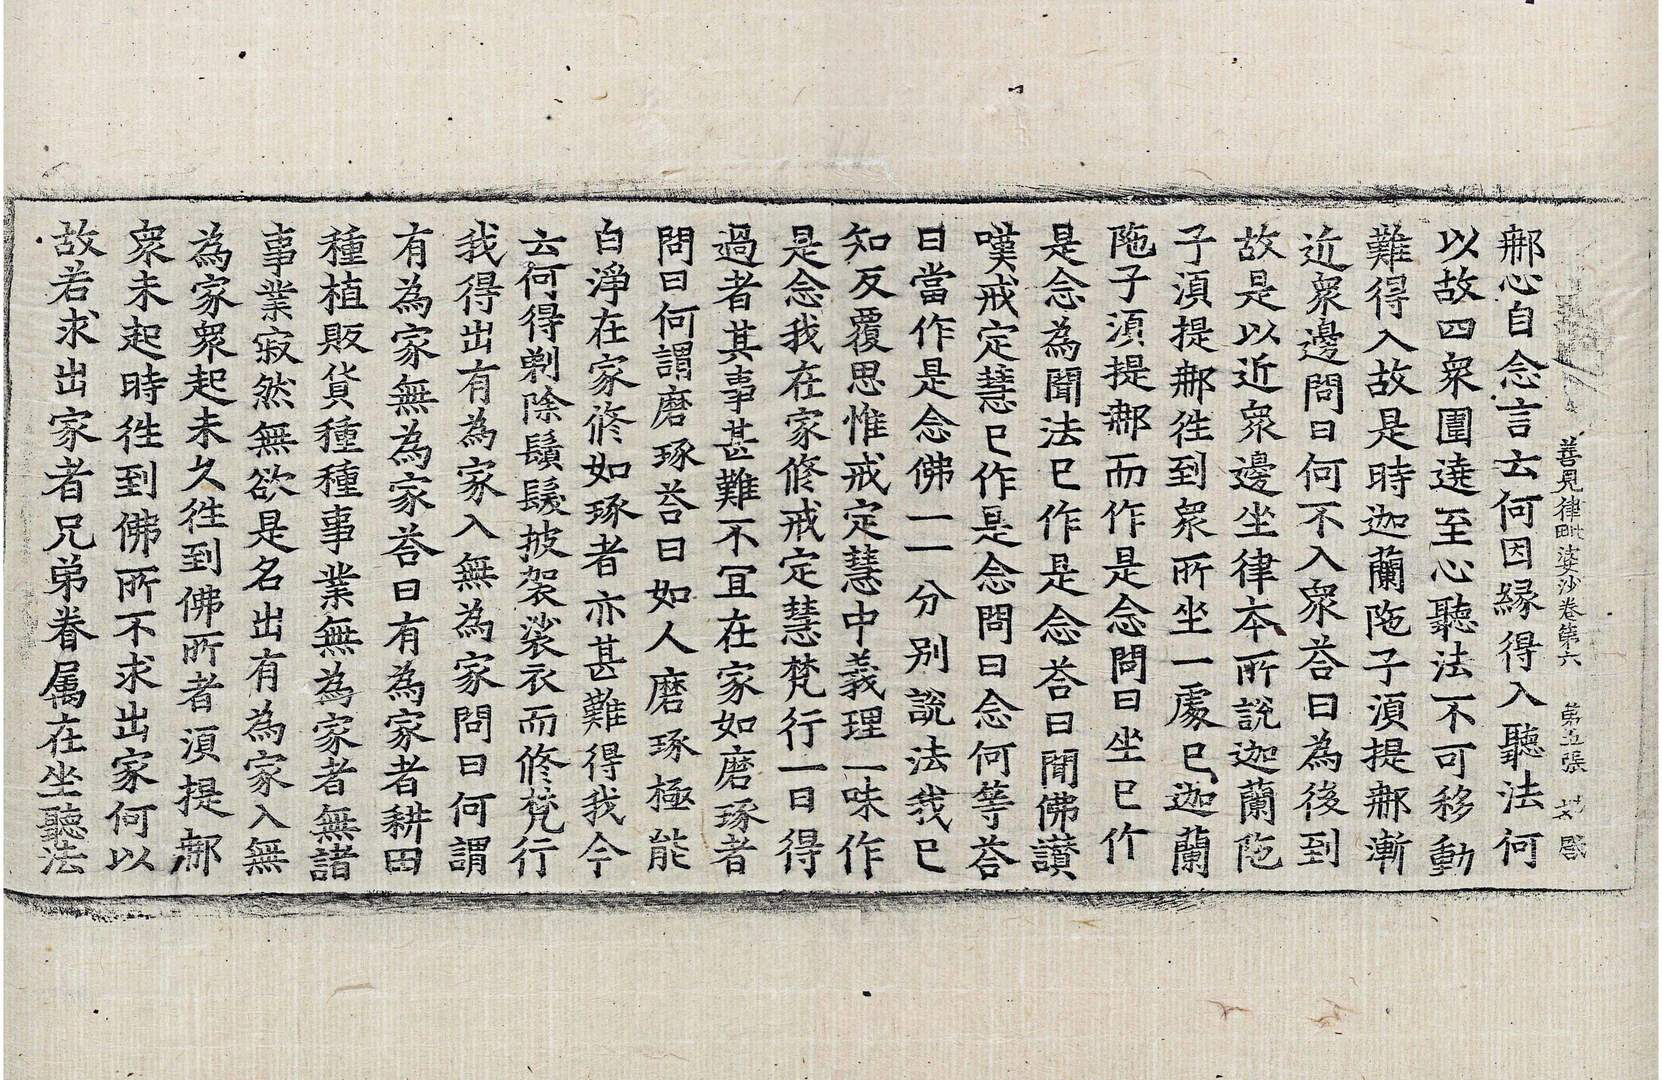 善見律毗婆沙卷第六　第五張
𨚗心自念言云何因縁得入聽法何
以故四衆圍遶至心聽法不可移動
難得入故是時迦蘭陁子湏提𨚗漸
近衆邊問曰何不入衆荅曰為後到
故是以近衆邊坐律本所說迦蘭陁
子湏提𨚗徃到衆所坐一處已迦蘭
陁子湏提𨚗而作是念問曰坐已作
是念為聞法已作是念荅曰聞佛讃
嘆戒定慧已作是念問曰念何等荅
曰當作是念佛一一分別說法我已
知反覆思惟戒定慧中義理一味作
是念我在家修戒定慧梵行一日得
過者其事甚難不冝在家如磨琢者
問曰何謂磨琢荅曰如人磨琢極能
白淨在家修如琢者亦甚難得我今
云何得剃除鬚髮披袈裟衣而修梵行
我得出有為家入無為家問曰何謂
有為家無為家荅曰有為家者耕田
種植販貨種種事業無為家者無諸
事業寂然無欲是名出有為家入無
為家衆起未久徃到佛所者湏提𨚗
衆未起時徃到佛所不求出家何以
故若求出家者兄弟眷属在坐聽法